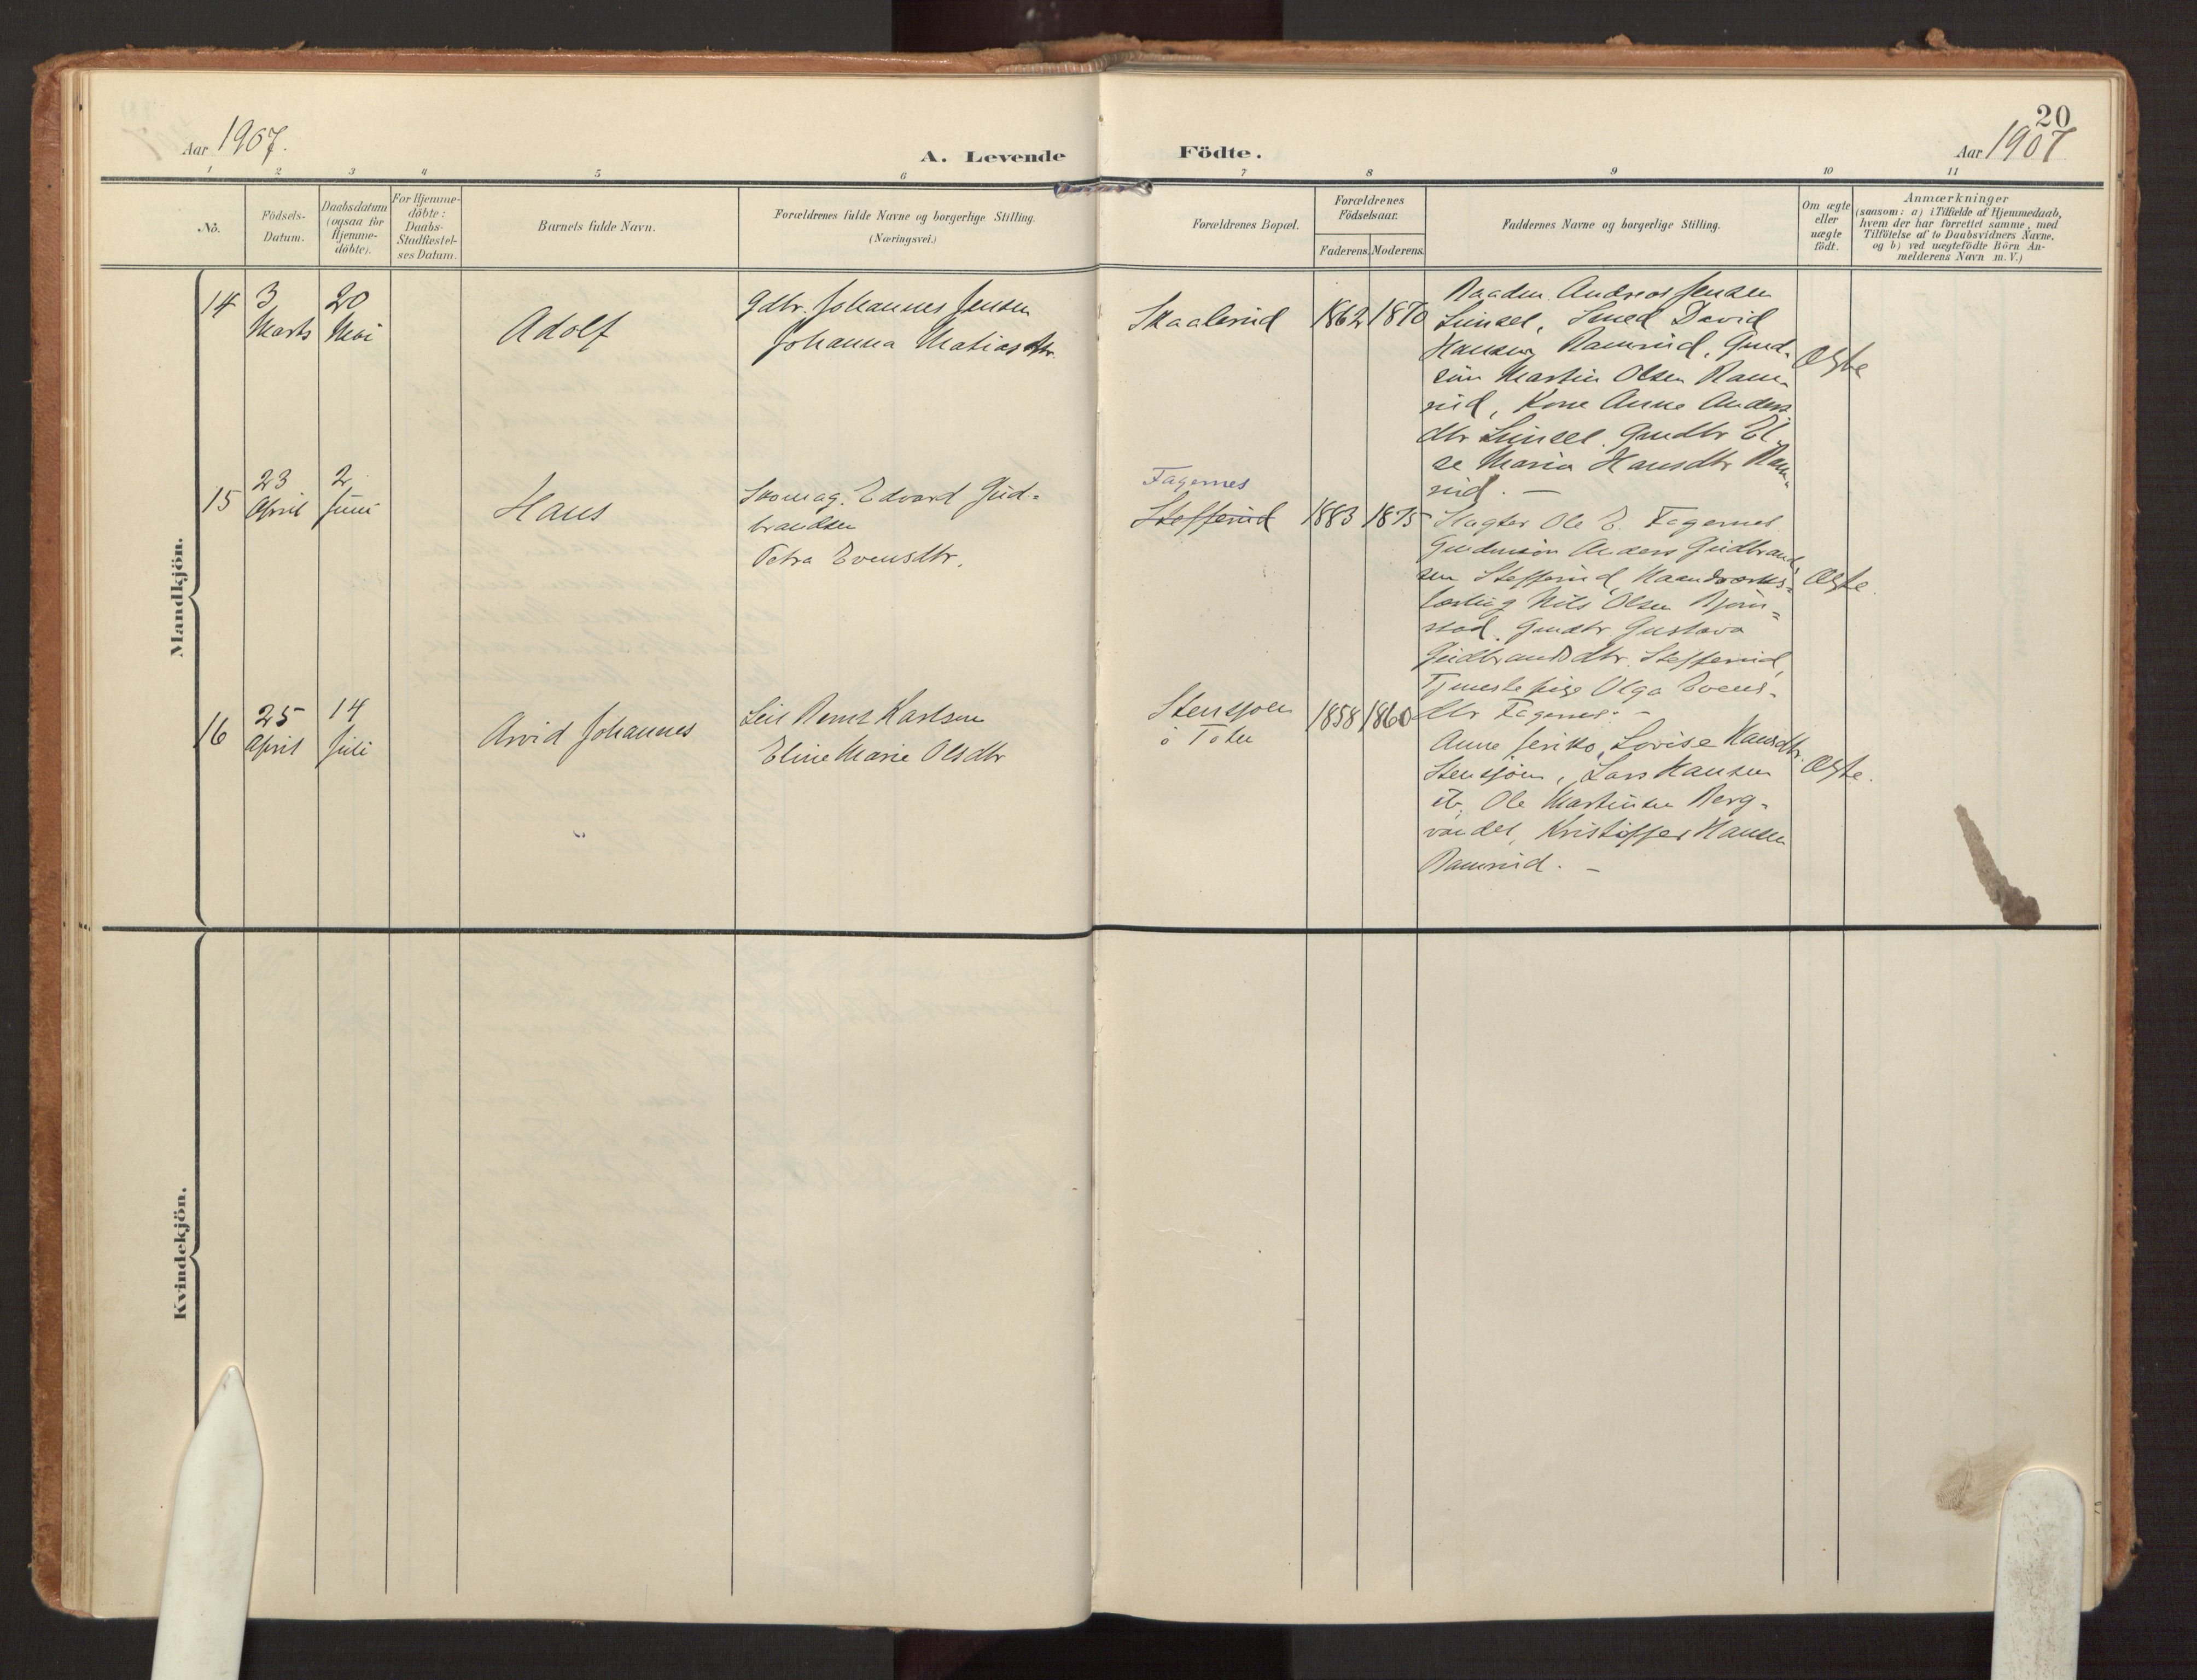 20
Aar 1907.
A. Levende
Födte.
Aar 1907
1 2 3 4 5 6 7 8 9 10 11
Nō.
Födsels-
Datum.
Daabsdatum
(ogsaa for
Hjemme-
döbte).
For Hjemme-
döbte:
Daabs-
Stadfæstel-
ses Datum.
Barnets fulde Navn.
Forældrenes fulde Navne og borgerlige Stilling.
(Næringsvei.)
Forældrenes Bopæl.
Forældrenes
Födselsaar.
Faderens. Moderens.
Faddernes Navne og borgerlige Stilling.
Om ægte
eller
uægte
födt.
Anmærkninger
(saasom: a) i Tilfælde af Hjemmedaab,
hvem der har forrettet samme, med
Tilföielse af to Daabsvidners Navne,
og b) ved uægtefödte Börn An-
melderens Navn m. V.)
Mandkjön.
14
3
Marts
20
Mai
Adolf
Gdbr. Johannes Jensen
Johanna Matiasdtr.
Skaalerud
1862 1870
Andreas Jensen
Smed David
Hansen Ramrud, Gmd.
sön Martin Olsen Ram-
rud, Kone Anne Anders
dtr Gmdtr El-
se Maria Hansdtr Ram-
rud. —
Ægte
15
23
April
2
Juni
Hans
Skomag. Edvard Gud-
brandsen
Petra Evensdtr.
Fagernes
Stefferud
1883 1875
Slagter Ole E. Fagernes
Gaardmsön Anders Gudbrand-
sen Stefferud, Haandværks-
lærling Nils Olsen Bjørn-
stad. Gmdtr Gustava
Gudbrandsdtr. Stefferud,
Tjenestepige Olga Evens-
dtr Fagernes. —
Ægte.
16
25
April
14
Juli
Arvid Johannes
Leil Bernt Karlsen
Eline Marie Olsdtr
Stensjoen
ö Toten
1858 1860
Anne Jeriko, Lovise Hansdtr.
Stensjöen, Lars Hansen
ib, Ole Martinsen Berg-
vandet, Kristoffer Hansen
Ramrud. —
Ægte.
Kvindekjön.